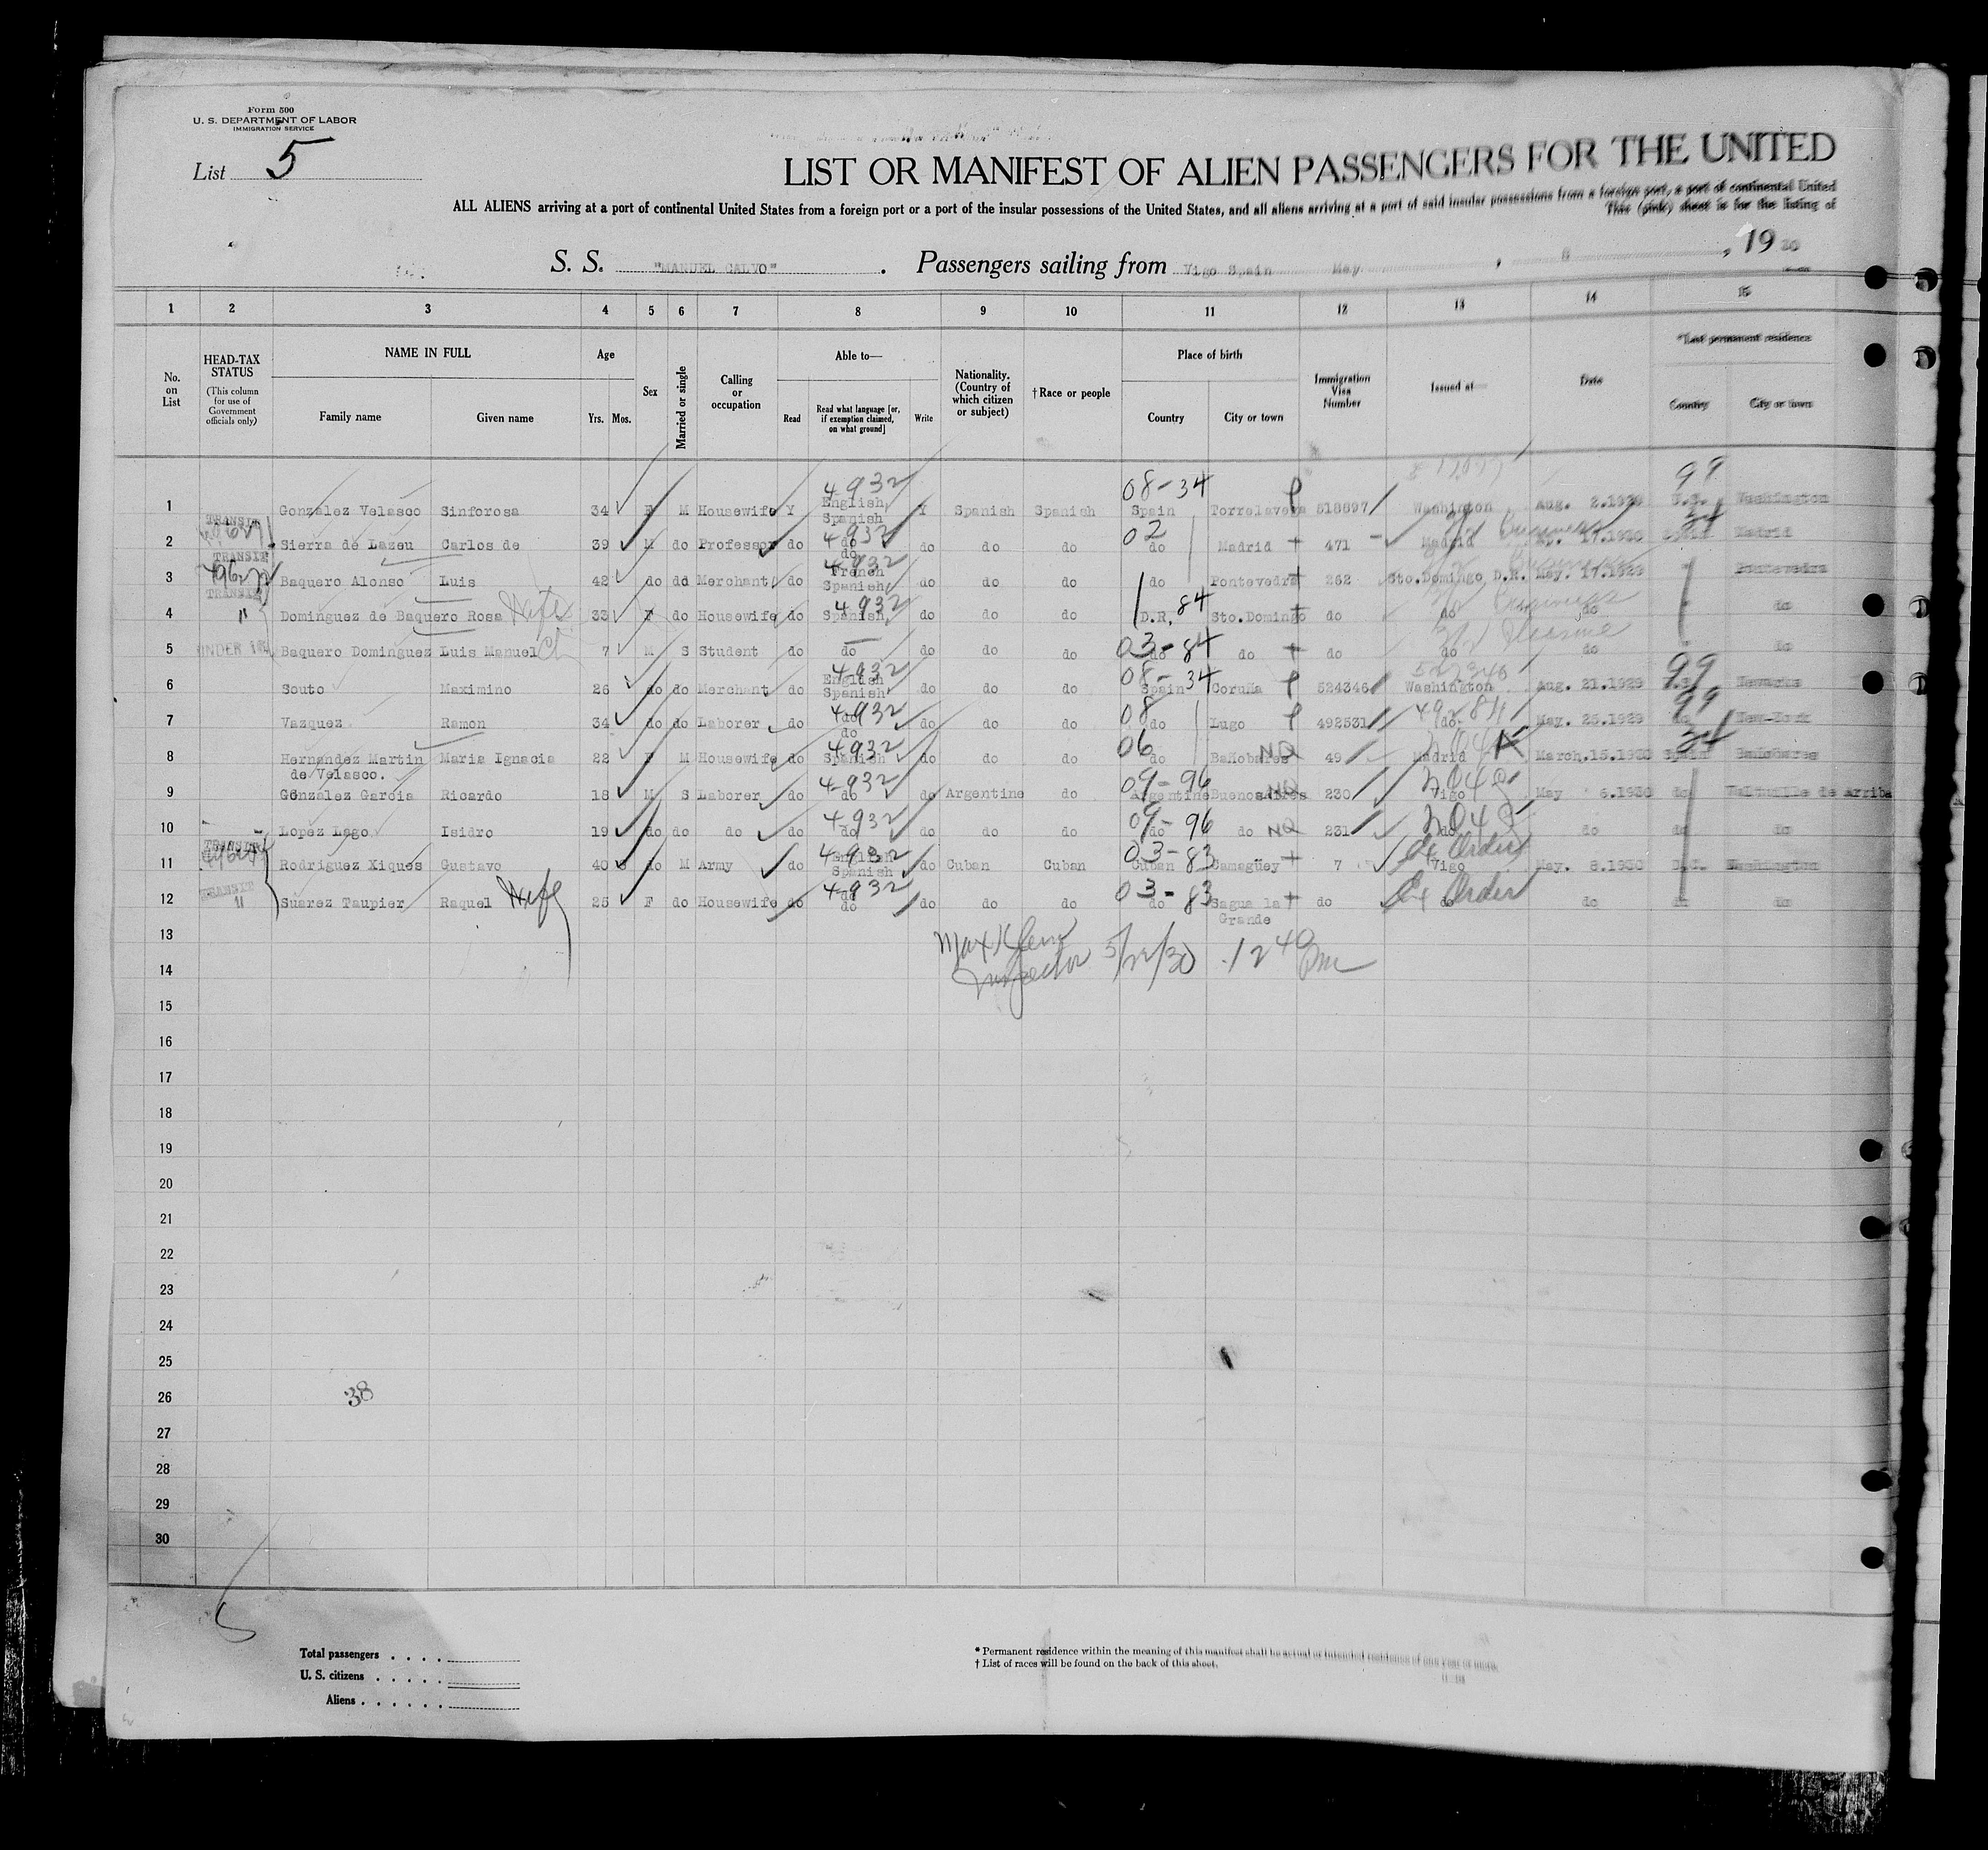 Form 500
U. S. DEPARTMENT OF LABOR
IMMIGRATION SERVICE
List 5
LIST OR MANIFEST OF ALIEN PASSENGERS FOR THE UNITED
ALL ALIENS arriving at a port of continental United States from a foreign port or a port of the insular possessions of the United States, and all aliens arriving at a port of said insular possessions from a foreign port, a port of continental United
This (pink) sheet is for the listing of
S. S. "MANUEL CALVO". Passengers sailing from Vigo Spain May 8, 1930
1 2 3 4 5 6 7 8 9 10 11 12 13 14 15
No. on List
HEAD-TAX STATUS
(This column for use of Government officials only)
NAME IN FULL
Family name Given name
Age
Yrs. Mos.
Sex
Married or single
Calling or occupation
Able to—
Read
Read what language [or, if exemption claimed, on what ground]
Write
Nationality. (Country of which citizen or subject)
†Race or people
Place of birth
Country City or town
Immigration Visa Number
Issued at—
Date
*Last permanent residence
Country City or town
4-932 08-34 99
1 Gonzalez Velasco Sinforosa 34 F M Housewife Y English Spanish Y Spanish Spanish Spain Torrelavega 518897 Washington Aug. 2.1929 U.S. Washington
TRANSIT 4-932 02
2 Sierra de Lazeu Carlos de 39 M do Professor do do do do do do do Madrid 471 Madrid 17.1930 Spain Madrid
TRANSIT 4-932
3 Baquero Alonso Luis 42 do do Merchant do French Spanish do do do do Pontevedra 262 Sto.Domingo D.R. May. 17.1929 Pontevedra
TRANSIT 4-932 84
4 " Dominguez de Baquero Rosa Wife 33 F do Housewife do Spanish do do do D.R. Sto.Domingo do do do do
03-84
5 UNDER 16 Baquero Dominguez Luis Manuel Ch 7 M S Student do do do do do do do do do do do do
4-932 08-34 99
6 Souto Maximino 26 do do Merchant do English Spanish do do do Spain Coruña 524346 Washington Aug. 21.1929 U.S. Newark
4-932 08 99
7 Vazquez Ramon 34 do do Laborer do do do do do do do Lugo 492531 do May. 25.1929 do New-York
4-932 06
8 Hernandez Martin de Velasco. Maria Ignacia 22 F M Housewife do Spanish do do do do Bañobares NQ 49 Madrid March.15.1930 Spain Bañobares
4-932 09-96
9 Gonzalez Garcia Ricardo 18 M S Laborer do do do Argentine do Argentine Buenos Aires NQ 230 Vigo May 6.1930 do Valtuille de Arriba
4-932 09-96
10 Lopez Lago Isidro 19 do do do do do do do do do do NQ 231 do do do do
TRANSIT 4-932 03-83 Ex Order
11 Rodriguez Xiques Gustavo 40 do M Army do English Spanish do Cuban Cuban Cuban Camagüey 7 Vigo May. 8.1930 Washington
TRANSIT 4-932 03-83 Ex Order
12 " Suarez Taupier Raquel Wife 25 F do Housewife do do do do do do do Sagua la Grande do do do do do
13
Inspector 5/22/30 12 40 Pm
14
15
16
17
18
19
20
21
22
23
24
25
26
38
27
28
29
30
Total passengers
U. S. citizens
Aliens
* Permanent residence within the meaning of this manifest shall be actual or intended residence of one year or more.
† List of races will be found on the back of this sheet.